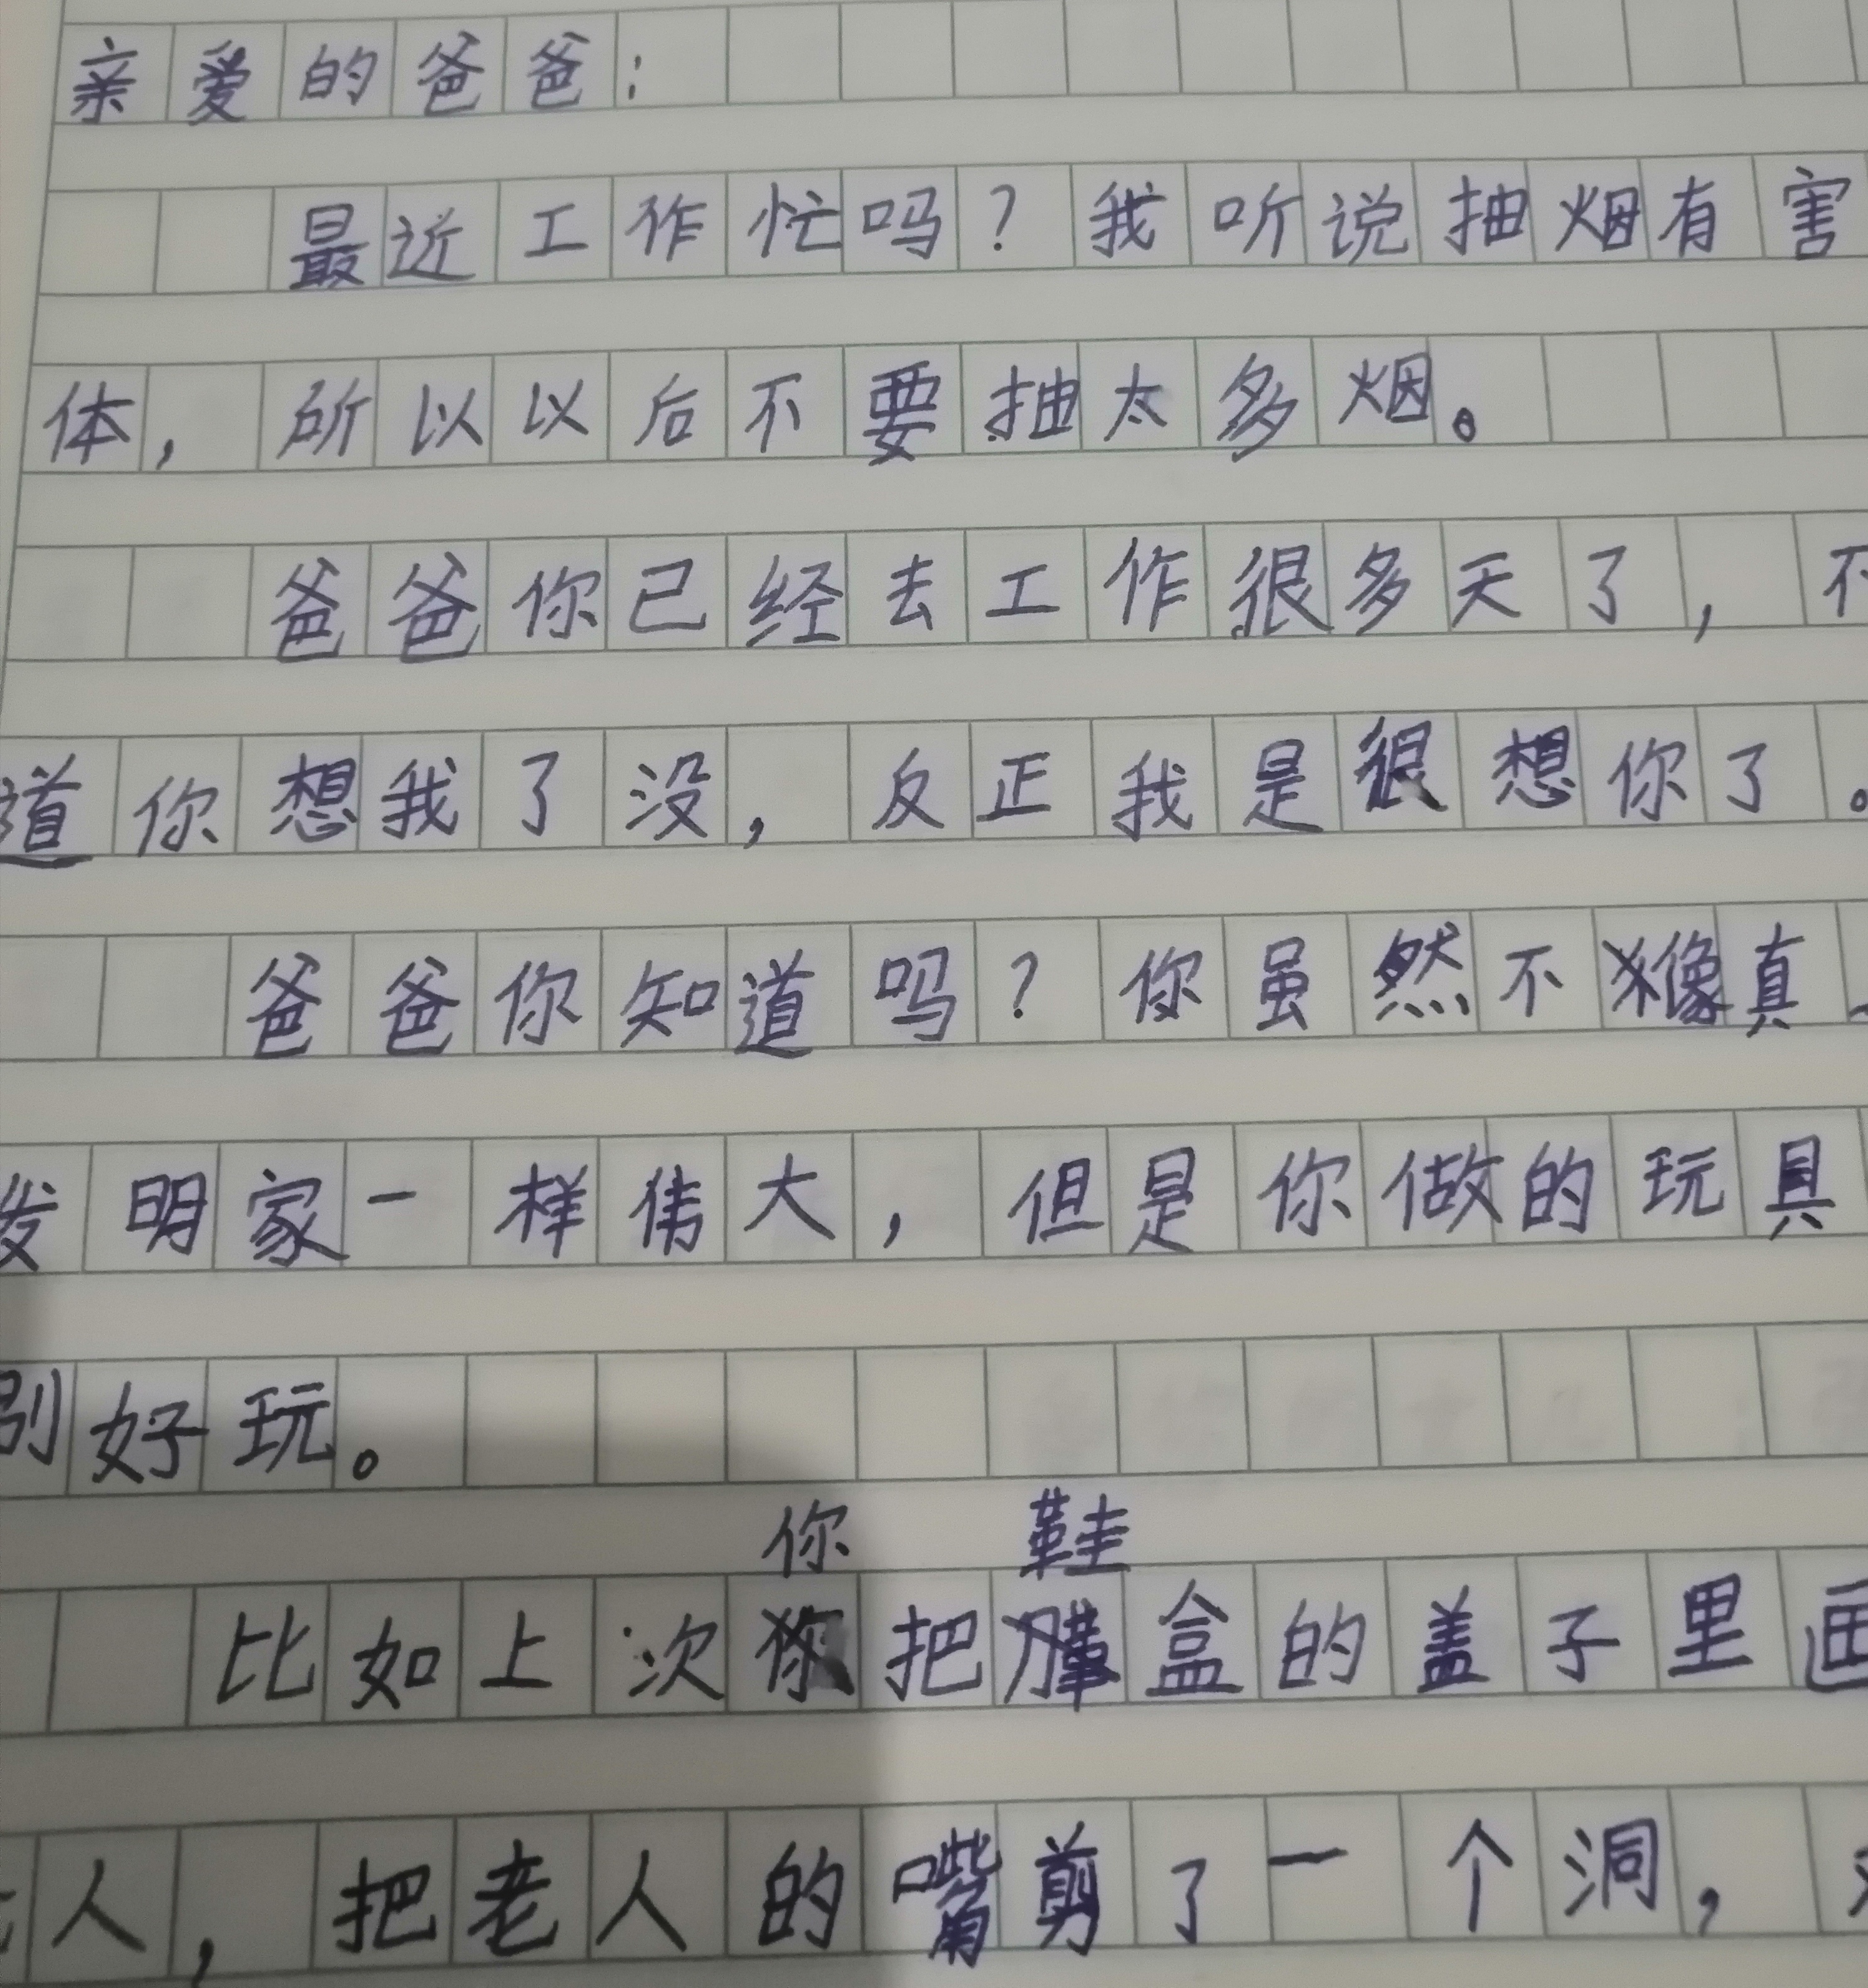 亲爱的爸爸:
最近工作忙吗?我听说抽烟有害
体,所以以后不要抽太多烟。
爸爸你已经去工作很多天了,不
道你想我了没,反正我是很想你了。
爸爸你知道吗?你虽然不像真
发明家一样伟大,但是你做的玩具
别好玩。
你 鞋
比如上次把盒的盖子里画
人,把老人的嘴剪了一个洞,